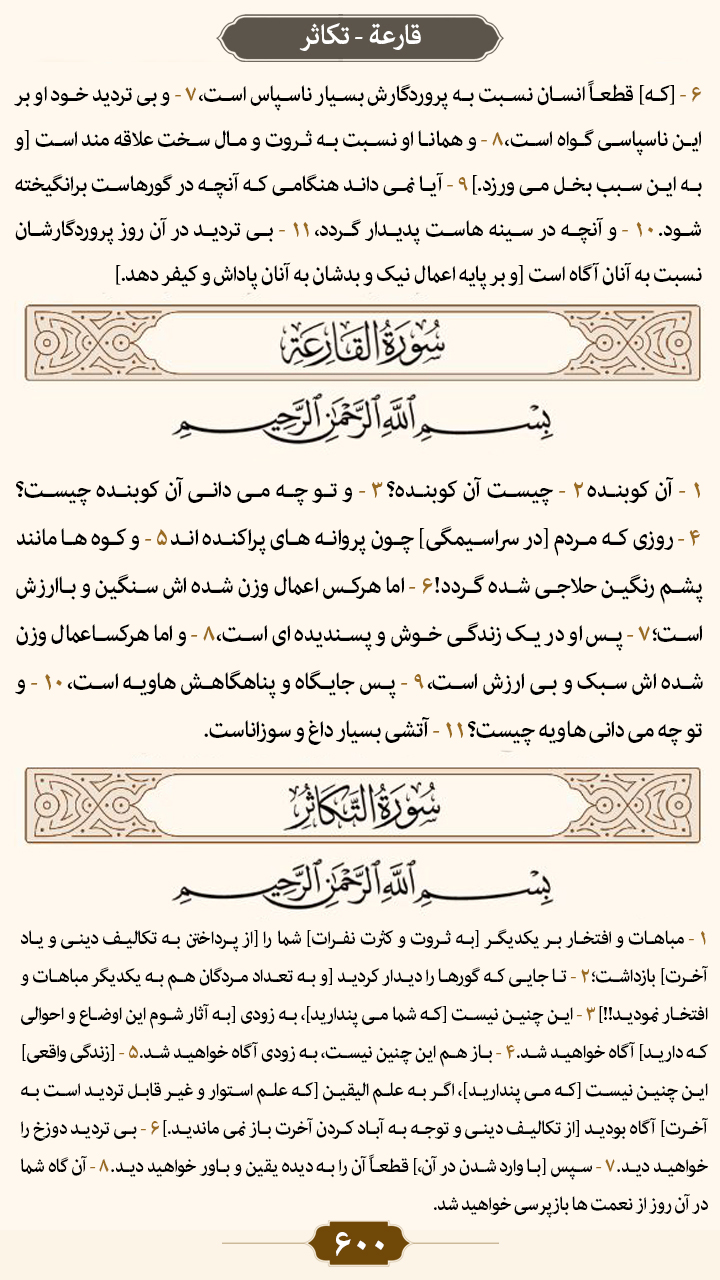 قارعة - تکاثر
۶ - [که] قطعاً انسان نسبت به پروردگارش بسیار ناسپاس است،۷ - و بی تردید خود او بر
این ناسپاسی گواه است،۸ - و همانا او نسبت به ثروت و مال سخت علاقه مند است [و
به این سبب بخل می ورزد.]۹ - آیا نمی داند هنگامی که آنچه در گورهاست برانگیخته
شود.۱۰ - و آنچه در سینه هاست پدیدار گردد،۱۱ - بی تردید در آن روز پروردگارشان
نسبت به آنان آگاه است [و بر پایه اعمال نیک و بدشان به آنان پاداش و کیفر دهد.]
سُورَةُ القَارِعَةِ
بِسْمِ اللَّهِ الرَّحْمَٰنِ الرَّحِيمِ
۱ - آن کوبنده۲ - چیست آن کوبنده؟۳ - و تو چه می دانی آن کوبنده چیست؟
۴ - روزی که مردم [در سراسیمگی] چون پروانه های پراکنده اند۵ - و کوه ها مانند
پشم رنگین حلاجی شده گردد!۶ - اما هرکس اعمال وزن شده اش سنگین و باارزش
است؛۷ - پس او در یک زندگی خوش و پسندیده ای است،۸ - و اما هرکساعمال وزن
شده اش سبک و بی ارزش است،۹ - پس جایگاه و پناهگاهش هاویه است،۱۰ - و
تو چه می دانی هاویه چیست؟۱۱ - آتشی بسیار داغ و سوزاناست.
سُورَةُ التَّكَاثُرِ
بِسْمِ اللَّهِ الرَّحْمَٰنِ الرَّحِيمِ
۱ - مباهات و افتخار بر یکدیگر [به ثروت و کثرت نفرات] شما را [از پرداختن به تکالیف دینی و یاد
آخرت] بازداشت؛۲ - تا جایی که گورها را دیدار کردید [و به تعداد مردگان هم به یکدیگر مباهات و
افتخار نمودید!!]۳ - این چنین نیست [که شما می پندارید]، به زودی [به آثار شوم این اوضاع و احوالی
که دارید] آگاه خواهید شد.۴ - باز هم این چنین نیست، به زودی آگاه خواهید شد.۵ - [زندگی واقعی]
این چنین نیست [که می پندارید]، اگر به علم الیقین [که علم استوار و غیر قابل تردید است به
آخرت] آگاه بودید [از تکالیف دینی و توجه به آباد کردن آخرت باز نمی ماندید.]۶ - بی تردید دوزخ را
خواهید دید.۷ - سپس [با وارد شدن در آن،] قطعاً آن را به دیده یقین و باور خواهید دید.۸ - آن گاه شما
در آن روز از نعمت ها بازپرسی خواهید شد.
۶۰۰